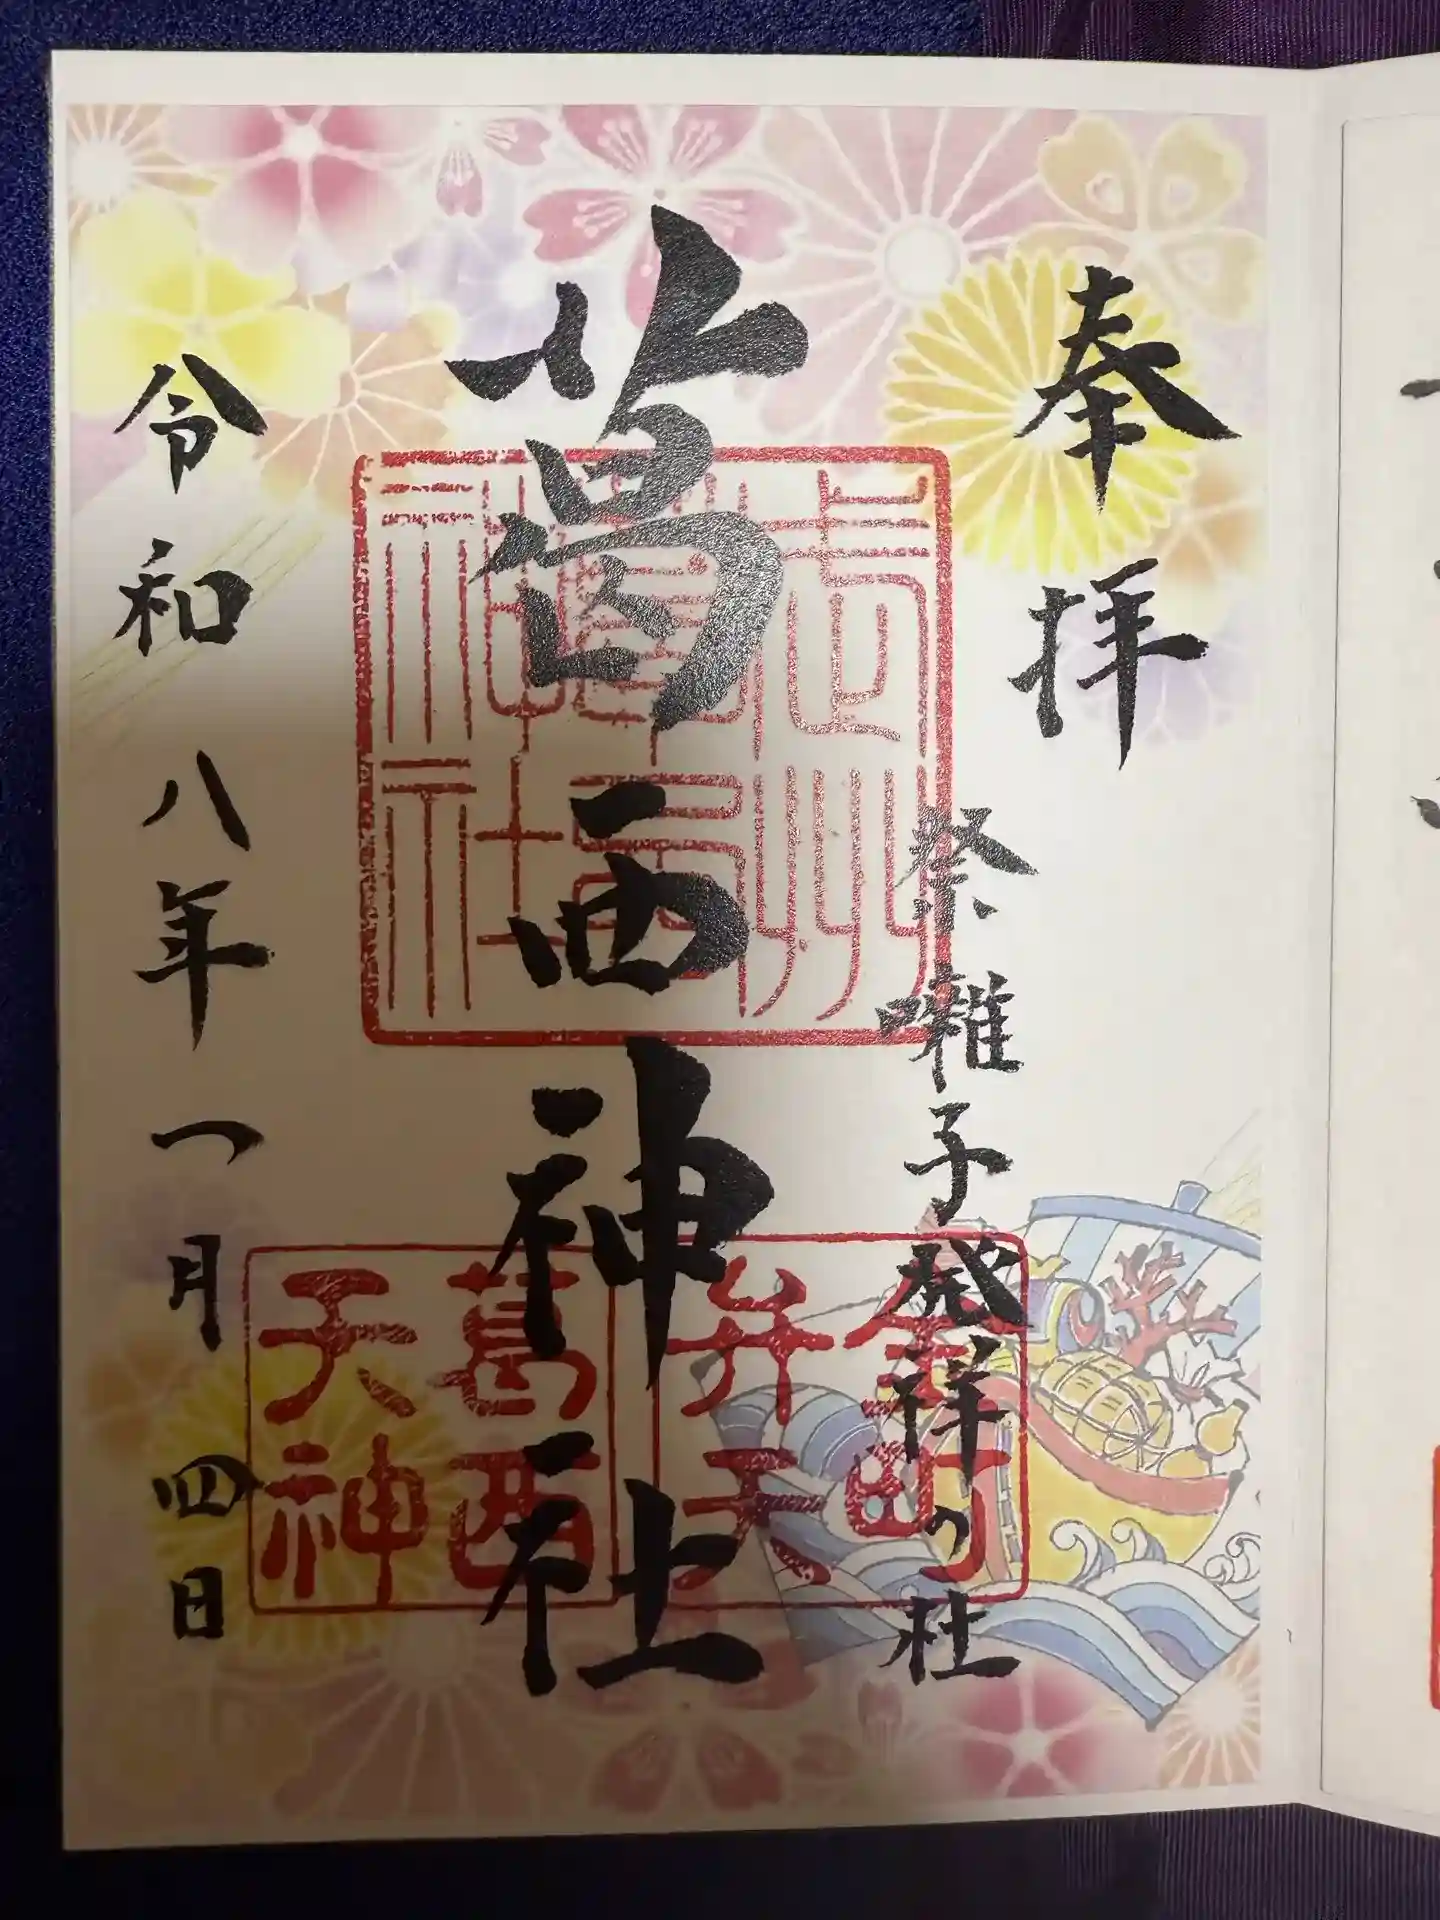 奉拝
祭囃子発祥の社
葛西神社
令和八年一月四日
武州
葛西
神社
金町
弁天
葛西
天神